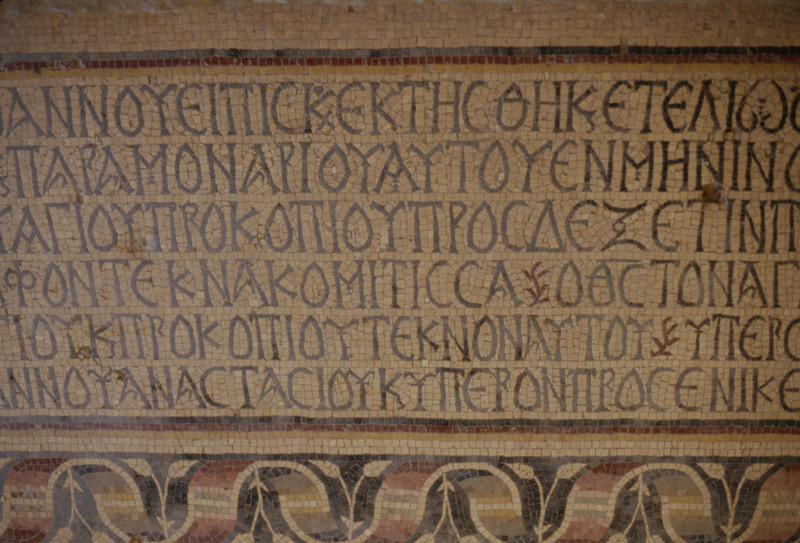 ΑΝΝΟΥΕΙΠΙΣΚϚΕΚΤΗСΘΗΚϚΕΤΕΛΙΩΘ
ϚΠΑΡΑΜΟΝΑΡΙΟΥΑΥΤΟΥΕΝΜΗΝΙΝΟ
ΥΑΓΙΟΥΠΡΟΚΟΠΙΟΥΠΡΟСΔΕΞΕΤΙΝΠ
ΑΦΟΝΤΕΚΝΑΚΟΜΙΤΙССΑΟΘСΤΟΝΑΓ
ΓΙΟΥΚϚΠΡΟΚΟΠΙΟΥΤΕΚΝΟΝΑΥΤΟΥΥΠΕΡС
ΑΝΝΟΥΑΝΑСΤΑСΙΟΥΚϚΥΠΕΡΟΝΠΡΟСΕΝΙΚΕ